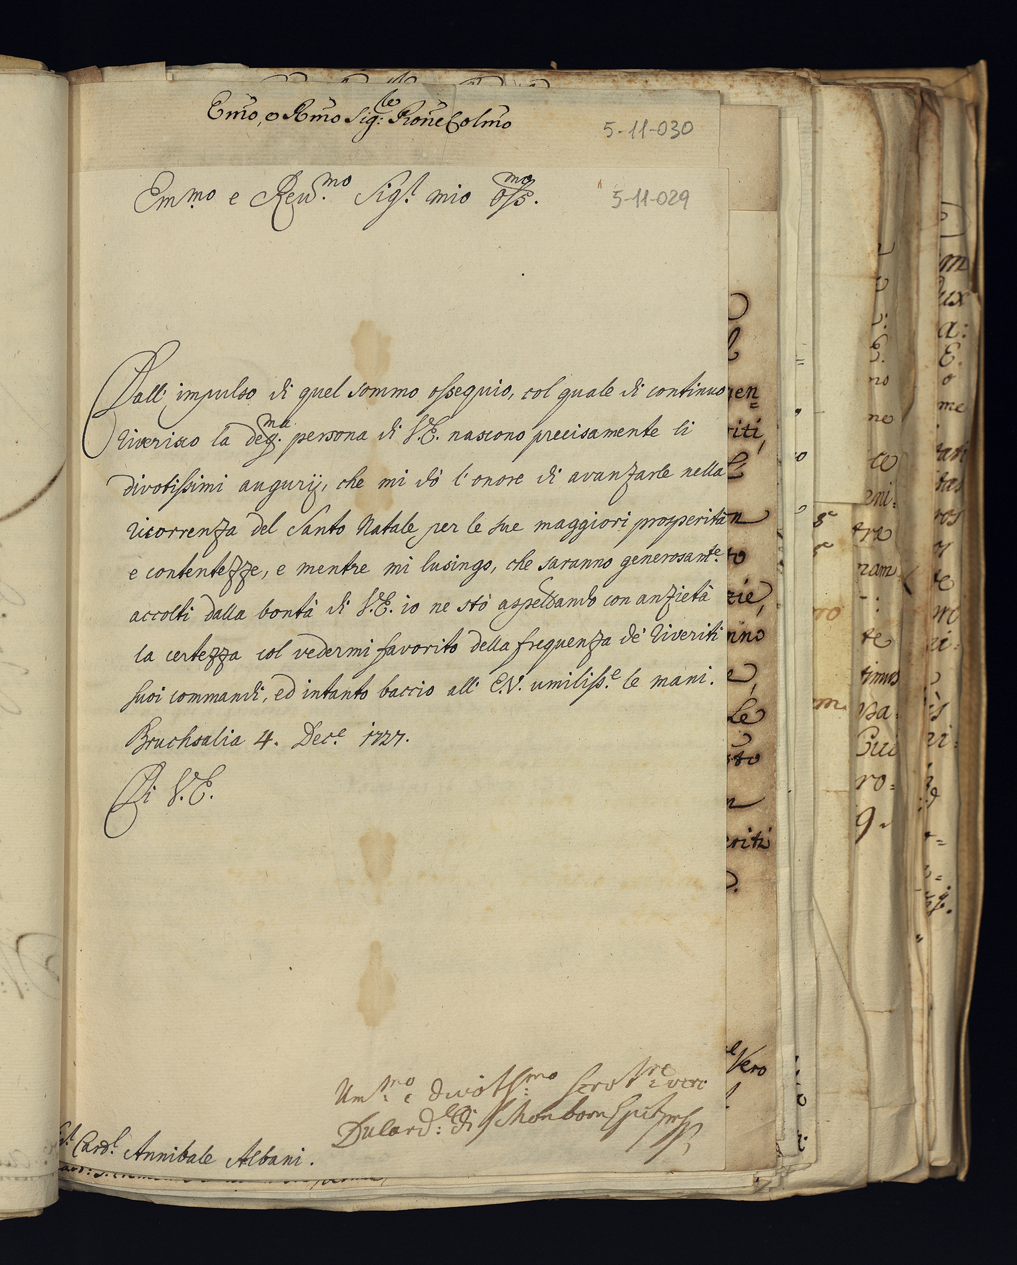 Em̃o, e Rm̃o Sig:re Pron̄e Colm̃o
5-11-030
Em.mo e Reu.mo Sig.r mio Oss.mo
5-11-029
Dall' impulso di quel sommo ossequio, col quale di continuo
riverisco la deg.ma persona di V.E. nascono precisamente li
divotissimi augurij, che mi dò l'onore di avanzarle nella
ricorrenza del Santo Natale per le sue maggiori prosperità
e contentezze, e mentre mi lusingo, che saranno generosam.te
accolti dalla bontà di V.E. io ne stò aspettando con anzietà
la certezza col vedermi favorito della frequenza de' riveriti
suoi commandi, ed intanto baccio all' E.V. umiliss.e le mani.
Bruchsalia 4. Dec.e 1727.
Di V.E.
Um.mo e divotss.mo Serv.re vero
Du Card.le di Schonborn
Card.l Annibale Albani.